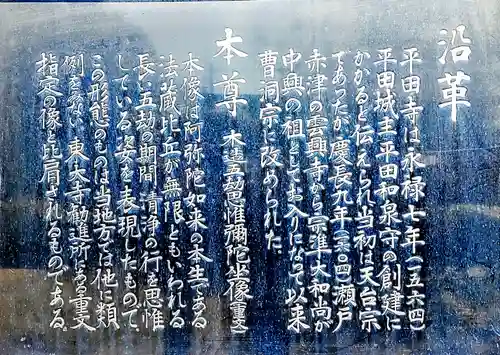 沿革
平田寺は永禄七年(一五六四)
平田城主平田和泉守の創建に
かかると伝えられ当初は天台宗
であったが慶長九年(一六〇四)瀬戸
赤津の雲興寺から宗準大和尚が
中興の祖としてお入りになって以来
曹洞宗に改められた。
本尊 木造五劫思惟彌陀坐像(重文)
本像は阿弥陀如来の本生である
法蔵比丘が無限ともいわれる
長い五劫の期間、清浄の行を思惟
している姿を表現したもので、
この形態のものは当地方では他に類
例をみない。東大寺勧進所にある重文
指定の像と比肩されるものである。